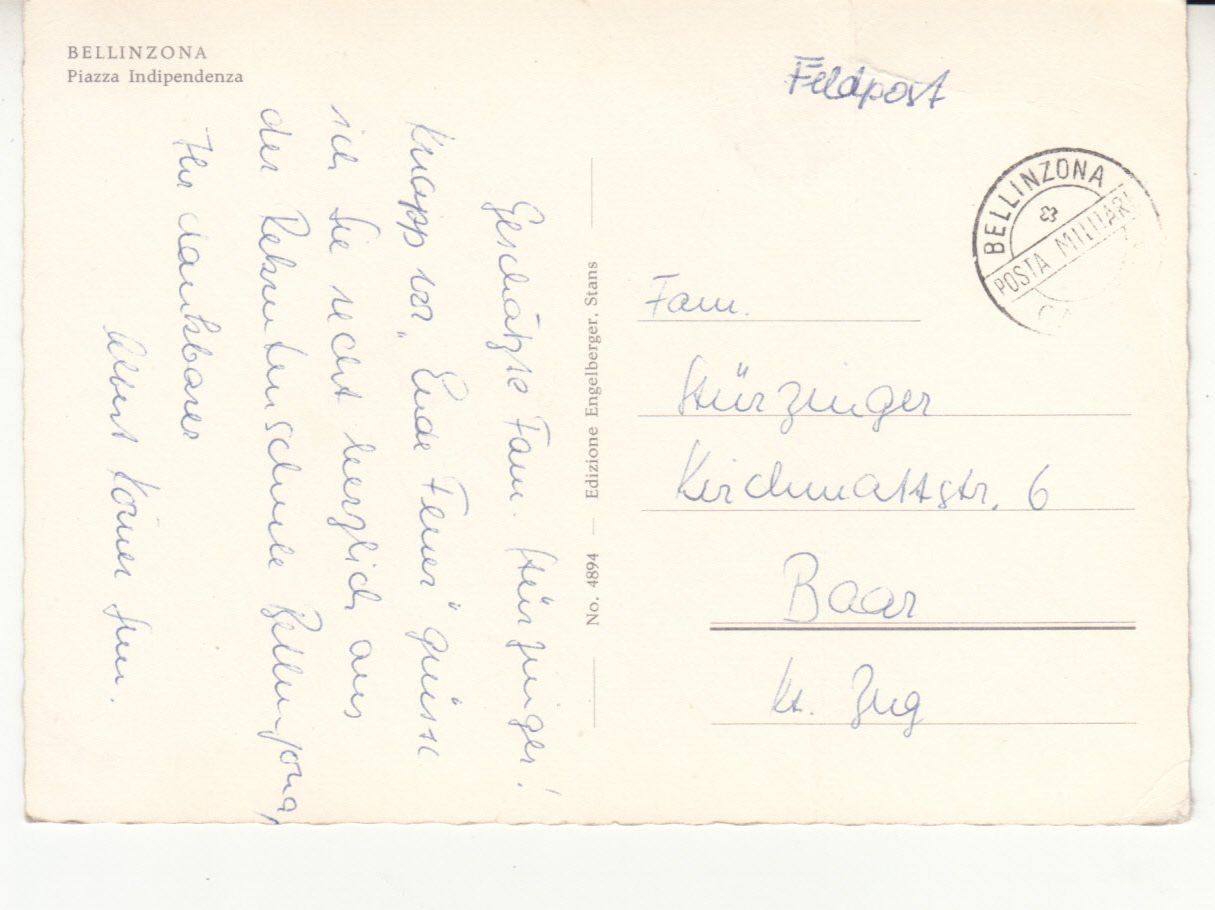 BELLINZONA
Piazza Indipendenza
Geschätzte Fam. Stürzinger!
Knapp vor „Ende Feuer" grüsse
ich Sie recht herzlich aus
der Rekrutenschule Bellinzona,
Ihr dankbarer
Albert
No. 4894 — Edizione Engelberger, Stans
Feldpost
BELLINZONA
POSTA MILITARE
Fam.
Stürzinger
Kirchmattstr. 6
Baar
Kt. Zug